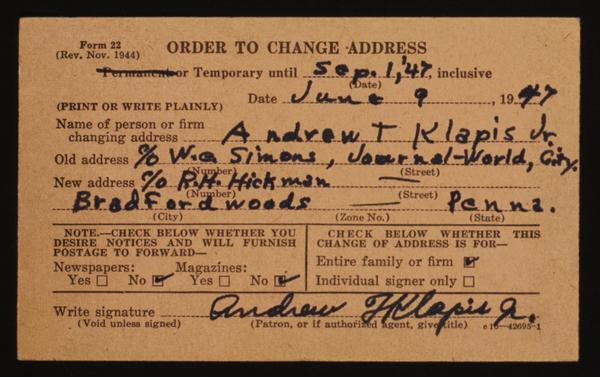 Form 22
(Rev. Nov. 1944)
ORDER TO CHANGE ADDRESS
Permanent or Temporary until Sep. 1, '47, inclusive
(Date)
Date June 9, 1947
(PRINT OR WRITE PLAINLY)
Name of person or firm
changing address Andrew T Klapis Jr.
Old address c/o W.C. Simons, Journal-World, City.
(Number) (Street)
New address c/o R.H. Hickman —
(Number) (Street)
Bradfordwoods — Penna.
(City) (Zone No.) (State)
NOTE.—CHECK BELOW WHETHER YOU
DESIRE NOTICES AND WILL FURNISH
POSTAGE TO FORWARD—
Newspapers: Magazines:
Yes ☐ No ☑ Yes ☐ No ☑
CHECK BELOW WHETHER THIS
CHANGE OF ADDRESS IS FOR—
Entire family or firm ☑
Individual signer only ☐
Write signature Andrew T Klapis Jr.
(Void unless signed) (Patron, or if authorized agent, give title) c16—42695-1